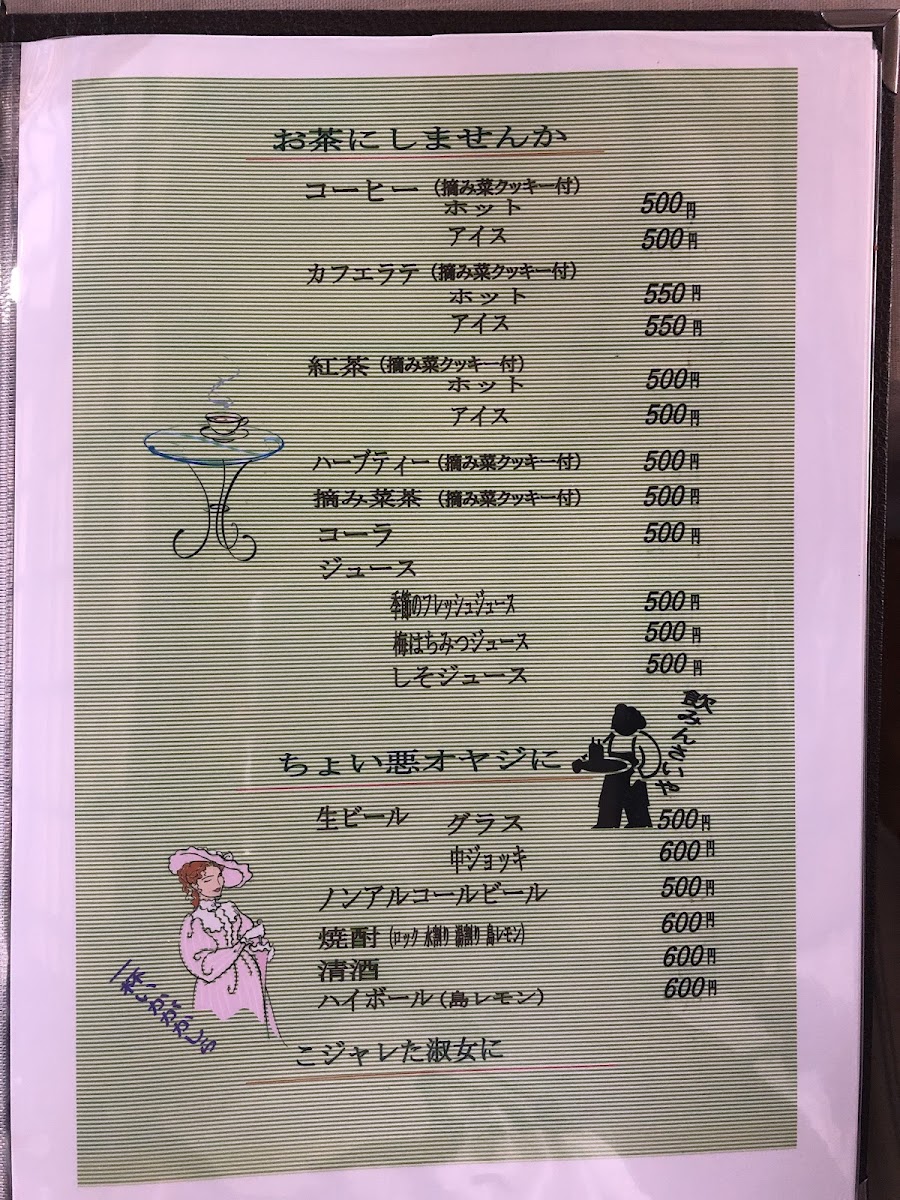 お茶にしませんか
コーヒー (摘み菜クッキー付)
ホット 500円
アイス 500円
カフェラテ (摘み菜クッキー付)
ホット 550円
アイス 550円
紅茶 (摘み菜クッキー付)
ホット 500円
アイス 500円
ハーブティー (摘み菜クッキー付) 500円
摘み菜茶 (摘み菜クッキー付) 500円
コーラ 500円
ジュース
季節のフレッシュジュース 500円
梅はちみつジュース 500円
しそジュース 500円
飲みんさいや
ちょい悪オヤジに
生ビール グラス 500円
中ジョッキ 600円
ノンアルコールビール 500円
焼酎 (ロック 水割り 湯割り 島レモン) 600円
清酒 600円
ハイボール (島レモン) 600円
一杯いかがかしら
こジャレた淑女に